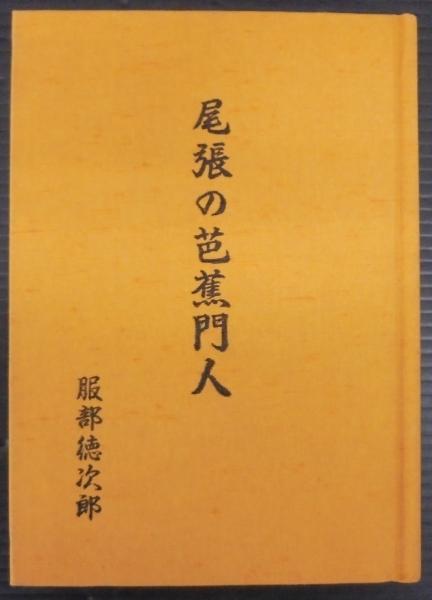 尾張の芭蕉門人
服部徳次郎